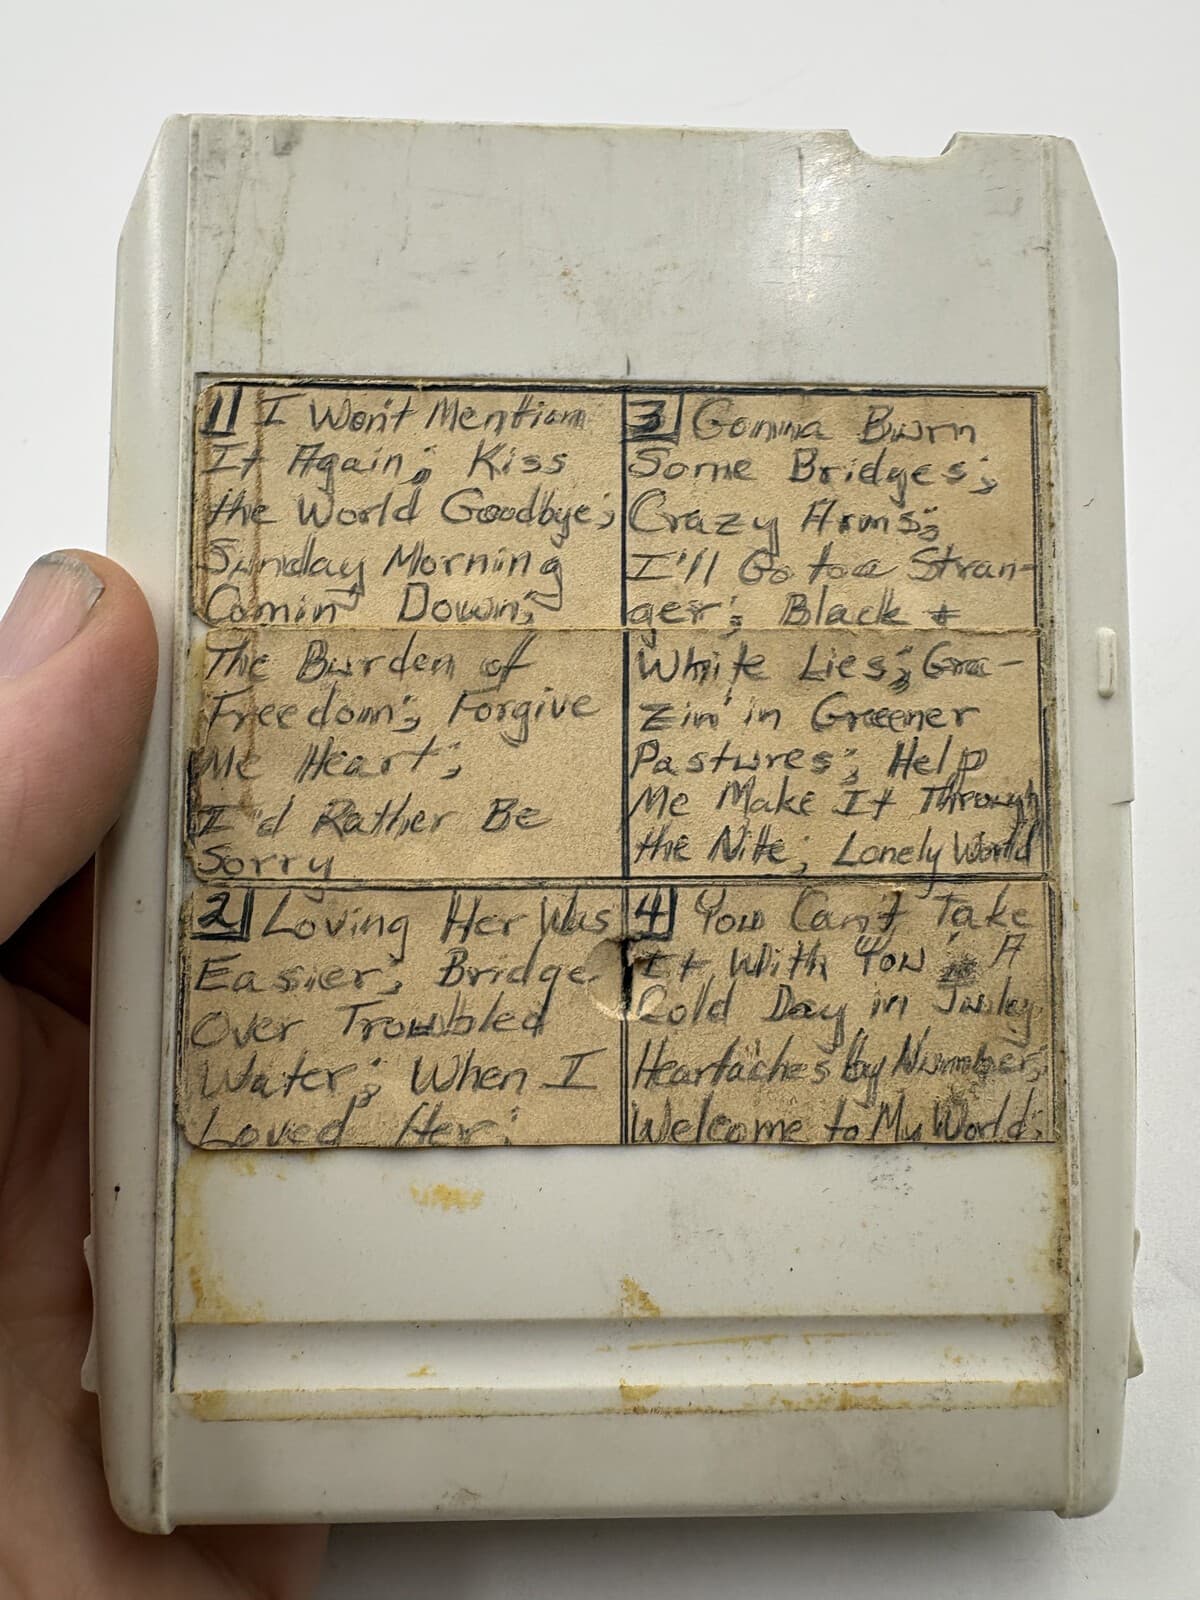 1 I Won't Mention
It Again; Kiss
the World Goodbye;
Sunday Morning
Comin' Down;
The Burden of
Freedom; Forgive
Me Heart;
I'd Rather Be
Sorry
2 Loving Her Was
Easier; Bridge
Over Troubled
Water; When I
Loved Her;
3 Gonna Burn
Some Bridges;
Crazy Arms;
I'll Go to a Stran-
ger; Black +
White Lies; Gra-
zin' in Greener
Pastures; Help
Me Make It Through
the Nite; Lonely World
4 You Can't Take
It With You; A
Cold Day in July;
Heartaches by Number;
Welcome to My World;